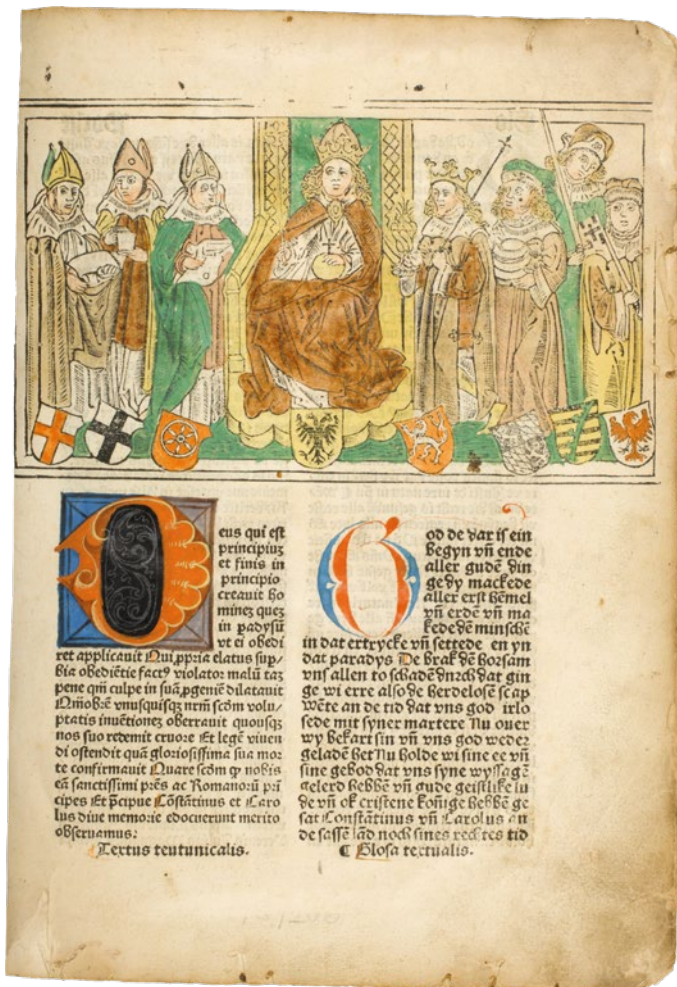 Deus qui est
principiuz
et finis in
principio
creauit ho
minez quez
in padysū
vt ei obedi
ret applicauit Qui ꝓpria elatus sup⸗
bia obediētie fact⁹ violator malū taz
pene qm̄ culpe in suā ꝓgeniē dilatauit
Qm̄obrē vnusquisqꝫ nrm̄ scd̄m volu⸗
ptatis inuētiones oberrauit quousqꝫ
nos suo redemit cruore Et legē viuen
di ostendit quā gloriosissima sua mor
te confirmauit Quare scd̄m ꝙ nobis
eā sanctissimi prēs ac Romanorū prī
cipes Et p̄cipue Cōstātinus et Caro
lus diue memorie edocuerunt merito
obseruamus:
Textus teutunicalis.
God de dar is ein
Begyn vn̄ ende
aller gudē din
ge dy mackede
aller erst hēmel
vn̄ erdē vn̄ ma
kede dē minschē
in dat ertrycke vn̄ settede en yn
dat paradys De brak dē horsam
vns allen to schadē dorch dat gin
ge wi erre also de herdelosē scap
wēte an de tid dat vns god irlo
sede mit syner martere Nu ouer
wy bekart sin vn̄ vns god weder
geladē het Nu holde wi sine ee vn̄
sine gebod dat vns syne wyssagē
gelerd hebbē vn̄ gude geistlike lu
de vn̄ ok cristene konige hebbē ge
sat Constātinus vn̄ Carolus an
de sassē lād noch sines rechtes tid
¶ Glosa textualis.